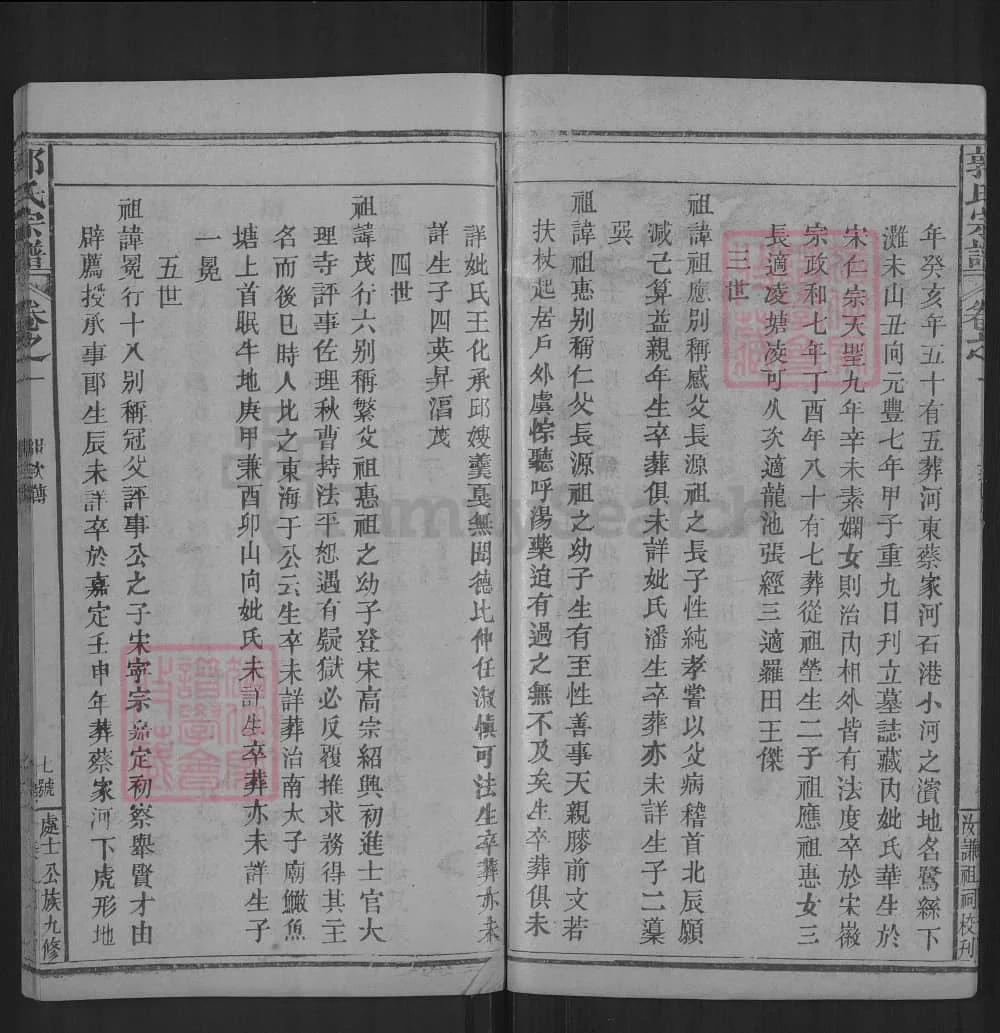 郭氏宗譜
卷之一
汝謙祖祠校刊
年癸亥年五十有五葬河東蔡家河石港小河之濱地名鷺絲下
灘未山丑向元豐七年甲子重九日刊立墓誌藏內妣氏華生於
宋仁宗天聖九年辛未素嫻女則治內相外皆有法度卒於宋徽
宗政和七年丁酉年八十有七葬從祖塋生二子祖應祖惠女三
長適凌塘凌可久次適龍池張經三適羅田王傑
三世
祖諱祖應別稱感父長源祖之長子性純孝嘗以父病稽首北辰願
減己算益親年生卒葬俱未詳妣氏潘生卒葬亦未詳生子二藻
吳
祖諱祖惠別稱仁父長源祖之幼子生有至性善事天親勝前文若
扶杖起居戶外虞惊聽呼湯藥迫有過之無不及矣生卒葬俱未
詳妣氏王化承邱嫂羹戛無聞德比仲任淑慎可法生卒葬亦未
詳生子四英昇滔茂
四世
祖諱茂行六別稱繁父祖惠祖之幼子登宋高宗紹興初進士官大
理寺評事佐理秋曹持法平恕遇有疑獄必反覆推求務得其主
名而後已時人比之東海于公云生卒未詳葬治南太子廟鱖魚
塘上首眠牛地庚甲兼酉卯山向妣氏未詳生卒葬亦未詳生子
一冕
五世
祖諱冕行十八別稱冠父評事公之子宋寧宗嘉定初察舉賢才由
辟薦授承事郎生辰未詳卒於嘉定壬申年葬蔡家河下虎形地
郭氏宗譜
卷之一
七號
處士公族九修